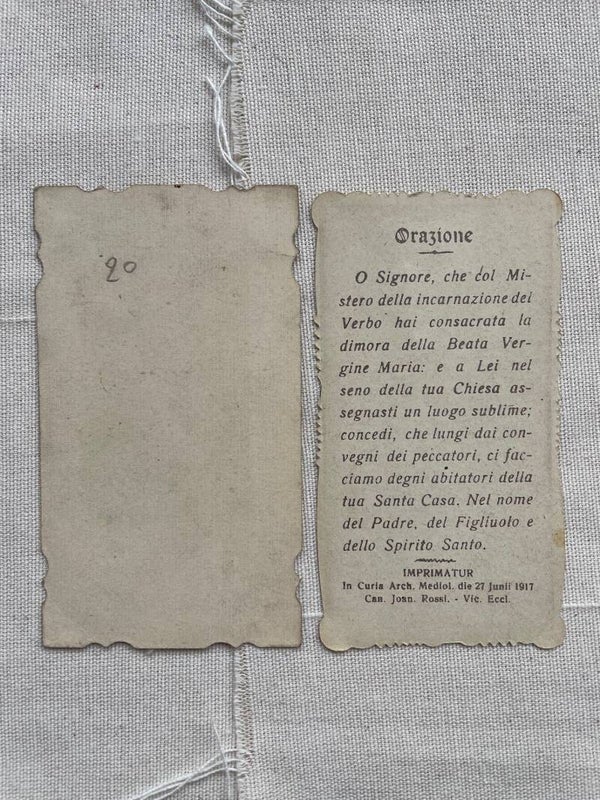 20
Orazione
O Signore, che col Mi-
stero della incarnazione dei
Verbo hai consacrata la
dimora della Beata Ver-
gine Maria: e a Lei nel
seno della tua Chiesa as-
segnasti un luogo sublime;
concedi, che lungi dai con-
vegni dei peccatori, ci fac-
ciamo degni abitatori della
tua Santa Casa. Nel nome
del Padre, del Figliuolo e
dello Spirito Santo.
IMPRIMATUR
In Curia Arch. Mediol. die 27 Junii 1917
Can. Joan. Rossi. - Vic. Eccl.